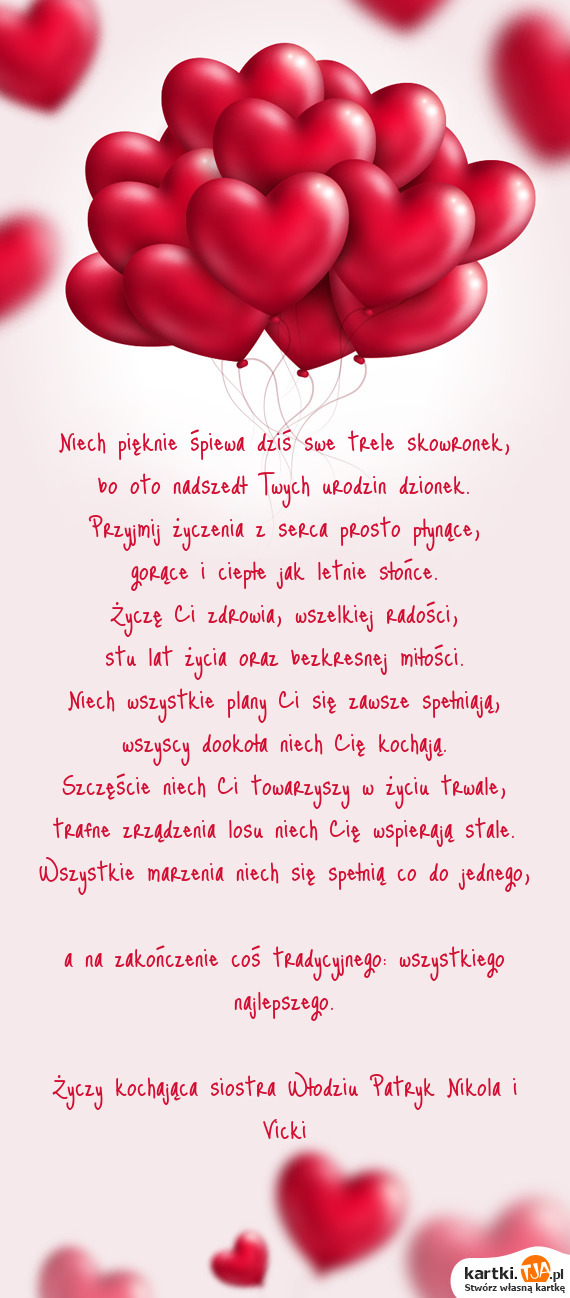 Niech pięknie śpiewa dziś swe trele skowronek,
bo oto nadszedł Twych urodzin dzionek.
Przyjmij życzenia z serca prosto płynące,
gorące i ciepłe jak letnie słońce.
Życzę Ci zdrowia, wszelkiej radości,
stu lat życia oraz bezkresnej miłości.
Niech wszystkie plany Ci się zawsze spełniają,
wszyscy dookoła niech Cię kochają.
Szczęście niech Ci towarzyszy w życiu trwale,
trafne zrządzenia losu niech Cię wspierają stale.
Wszystkie marzenia niech się spełnią co do jednego,
a na zakończenie coś tradycyjnego: wszystkiego
najlepszego.
Życzy kochająca siostra Włodziu Patryk Nikola i
Vicki
kartki.TJA.pl
Stwórz własną kartkę